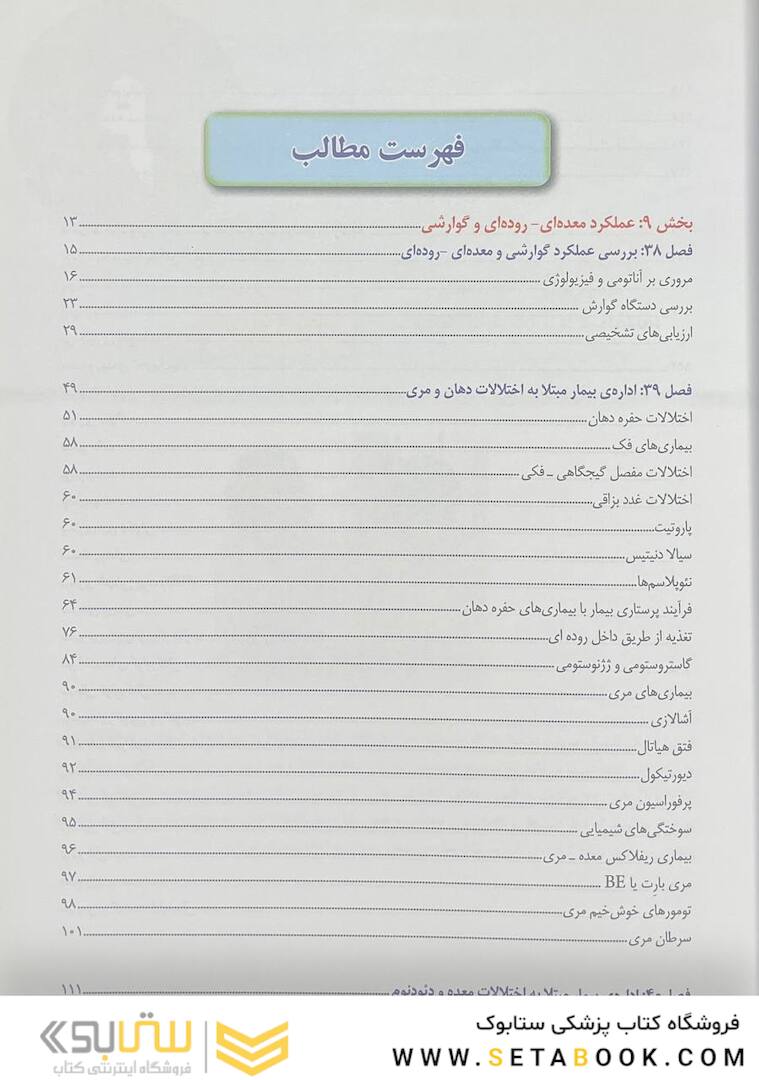 فهرست مطالب
بخش ۹: عملکرد معده‌ای- روده‌ای و گوارشی ۱۳
فصل ۳۸: بررسی عملکرد گوارشی و معده‌ای -روده‌ای ۱۵
مروری بر آناتومی و فیزیولوژی ۱۶
بررسی دستگاه گوارش ۲۳
ارزیابی‌های تشخیصی ۲۹
فصل ۳۹: اداره‌ی بیمار مبتلا به اختلالات دهان و مری ۴۹
اختلالات حفره دهان ۵۱
بیماری‌های فک ۵۸
اختلالات مفصل گیجگاهی ـ فکی ۵۸
اختلالات غدد بزاقی ۶۰
پاروتیت ۶۰
سیالا دنیتیس ۶۰
نئوپلاسم‌ها ۶۱
فرآیند پرستاری بیمار با بیماری‌های حفره دهان ۶۴
تغذیه از طریق داخل روده ای ۷۶
گاستروستومی و ژژنوستومی ۸۴
بیماری‌های مری ۹۰
آشالازی ۹۰
فتق هیاتال ۹۱
دیورتیکول ۹۲
پرفوراسیون مری ۹۴
سوختگی‌های شیمیایی ۹۵
بیماری ریفلاکس معده ـ مری ۹۶
مری بارِت یا BE ۹۷
تومورهای خوش‌خیم مری ۹۸
سرطان مری ۱۰۱
فصل ۴۰: اداره‌ی بیمار مبتلا به اختلالات معده و دئودنوم ۱۱۱
فروشگاه کتاب پزشکی ستابوک
WWW.SETABOOK.COM
ستابوک
فروشگاه اینترنتی کتاب